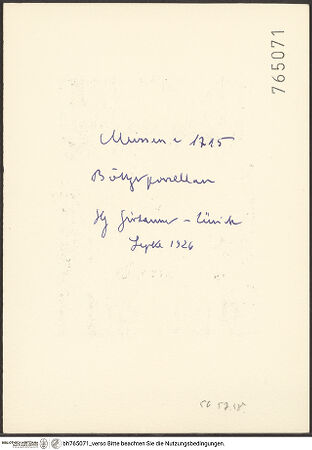 765071
Meissen c 1715
Böttgerporzellan
Slg Girtanner – Zürich
1926
bh765071_verso Bitte beachten Sie die Nutzungsbedingungen.